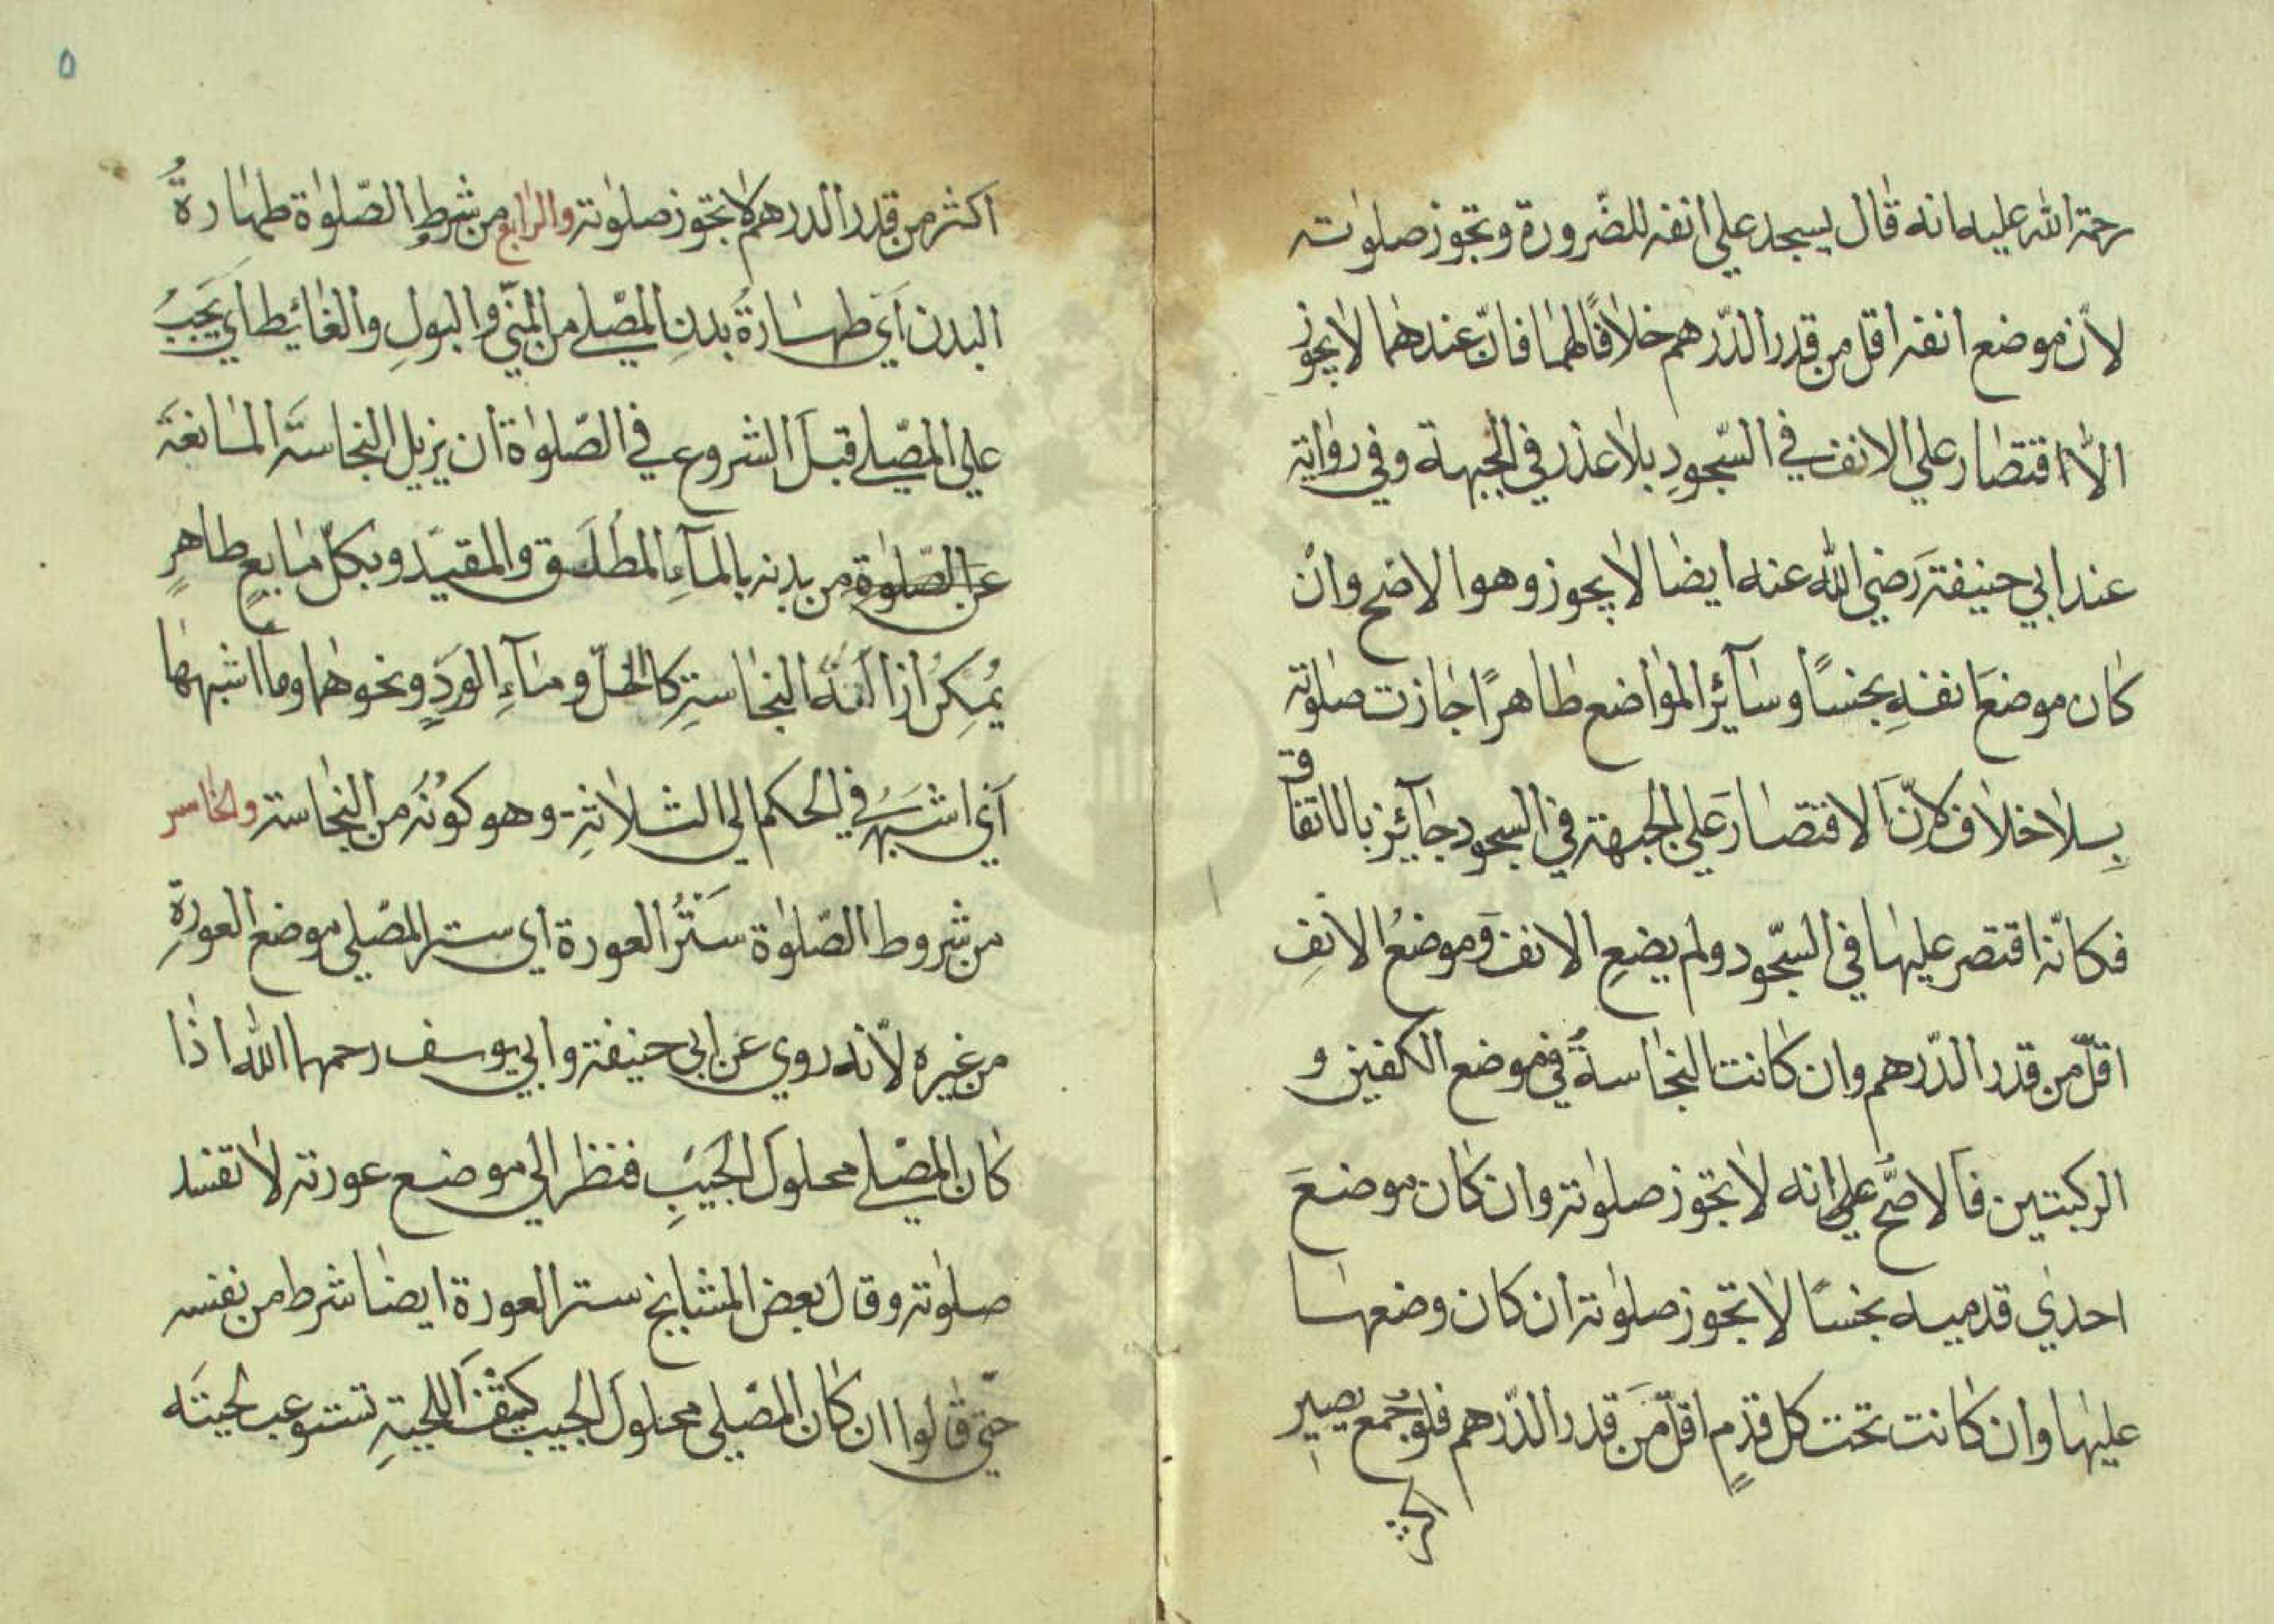 رحمة الله عليه انه قال يسجد علي انفه للضرورة وتجوز صلوته
لان موضع انفه اقل من قدر الدرهم خلافا لهما فان عندهما لا يجوز
الا اقتصار علي الانف في السجود بلا عذر في الجبهة وفي رواية
عند ابي حنيفة رضي الله عنه ايضا لا يجوز وهو الاصح وان
كان موضع انفه نجسا وسائر المواضع طاهرا جازت صلوته
بلا خلاف لان الاقتصار علي الجبهة في السجود جائز بالاتفاق
فكانه اقتصر عليها في السجود ولم يضع الانف وموضع الانف
اقل من قدر الدرهم وان كانت النجاسة في موضع الكفين و
الركبتين فالاصح علي انه لا تجوز صلوته وان كان موضع
احدي قدميه نجسا لا تجوز صلوته ان كان وضعها
عليها وان كانت تحت كل قدم اقل من قدر الدرهم فلو جمع يصير
اكثر
٥
اكثر من قدر الدرهم لا تجوز صلوته والرابع من شرط الصلوة طهارة
البدن اي طهارة بدن المصلي من المني والبول والغائط اي يجب
علي المصلي قبل الشروع في الصلوة ان يزيل النجاسة المانعة
عن الصلوة من بدنه بالماء المطلق والمقيد وبكل مايع طاهر
يمكن ازالة النجاسة كالخل وماء الورد ونحوهما وما اشبهها
اي اشبه في الحكم الي الثلاثة وهو كونه من النجاسة والخامس
من شروط الصلوة ستر العورة اي ستر المصلي موضع العورة
من غيره لانه روي عن ابي حنيفة وابي يوسف رحمهما الله اذا
كان المصلي محلول الجيب فنظر الي موضع عورته لا تفسد
صلوته وقال بعض المشايخ ستر العورة ايضا شرط من نفسه
حتي قالوا ان كان المصلي محلول الجيب كثف اللحية تستوعب لحيته